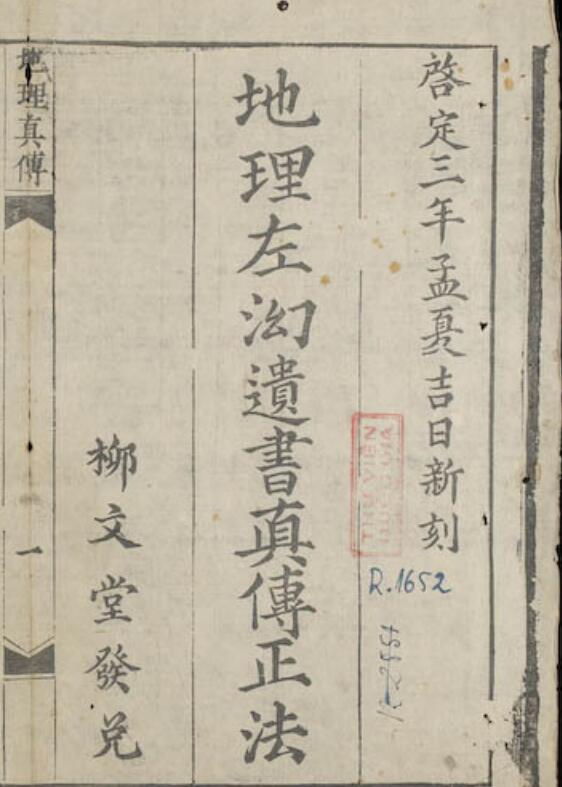 啓定三年孟夏吉日新刻
地理左沟遺書真傳正法
柳文堂發兌
地理真傳
一
R.1652
THU VIEN